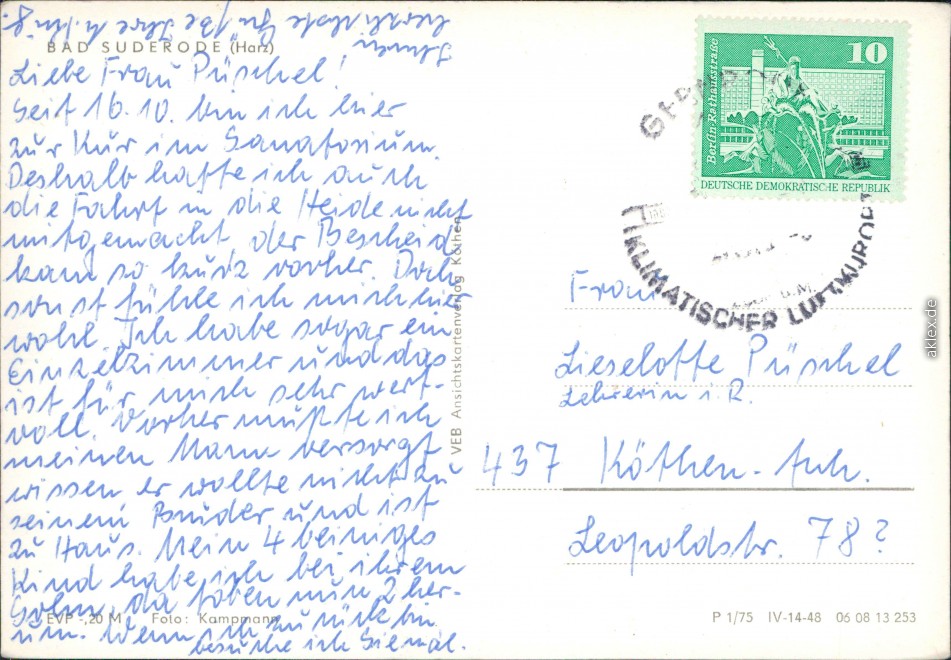 BAD SUDERODE (Harz)
Liebe Frau Püschel!
Seit 16.10. bin ich hier
zur Kur im Sanatorium.
Deshalb hatte ich auch
die Fahrt in die Heide nicht
mitgemacht, der Bescheid
kam so kurz vorher. Doch
sonst fühle ich mich hier
wohl. Ich habe sogar ein
Einzelzimmer und das
ist für mich sehr wert-
voll. Vorher mußte ich
meinen Mann versorgt
wissen er wollte nicht zu
seinem Bruder und ist
zu Haus. Mein 4 beiniges
Kind habe ich bei ihrem
Sohn, da toben nun 2 her-
um. Wenn ich zurück bin
besuche ich Sie mal.
Ihnen
herzlichste Grüße Ihre
EVP -,20 M Foto: Kampmann
VEB Ansichtskartenverlag Köthen
10
Berlin-Rathausstraße
DEUTSCHE DEMOKRATISCHE REPUBLIK
KLIMATISCHER LUFTKURORT
Frau
Lieselotte Püschel
Lehrerin i. R.
437 Köthen-Anh.
Leopoldstr. 78?
P 1/75 IV-14-48 06 08 13 253
aklex.de